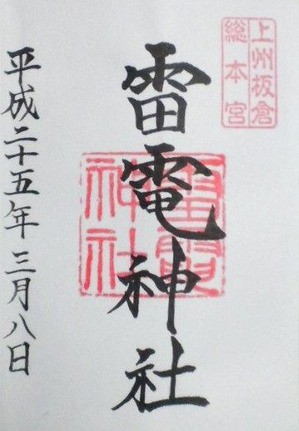 上州板倉
総本宮
雷電神社
雷電神社
平成二十五年三月八日